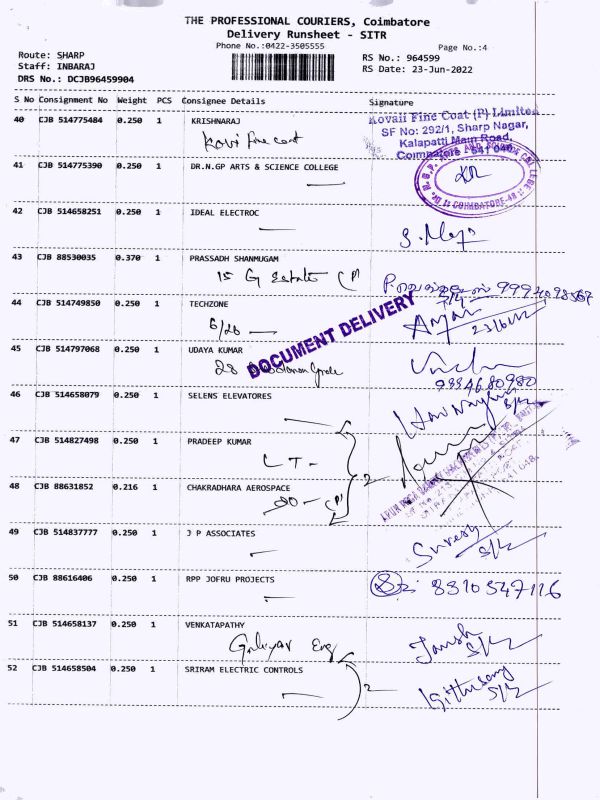 THE PROFESSIONAL COURIERS, Coimbatore
Delivery Runsheet - SITR
Phone No.:0422-3505555
Page No.:4
Route: SHARP
Staff: INBARAJ
DRS No.: DCJB96459904
RS No.: 964599
RS Date: 23-Jun-2022
S No Consignment No Weight PCS Consignee Details Signature
40 CJB 514775484 0.250 1 KRISHNARAJ
Kovai Fine Coat (P) Limited
SF No: 292/1, Sharp Nagar,
Kalapatti Main Road,
Coimbatore - 641 048
Kovi fine coat
41 CJB 514775390 0.250 1 DR.N.GP ARTS & SCIENCE COLLEGE
COIMBATORE-48
42 CJB 514658251 0.250 1 IDEAL ELECTROC
43 CJB 88530035 0.370 1 PRASSADH SHANMUGAM
15 G Estate CP
44 CJB 514749850 0.250 1 TECHZONE
6/26
DOCUMENT DELIVERY
45 CJB 514797068 0.250 1 UDAYA KUMAR
28
9884680980
46 CJB 514658079 0.250 1 SELENS ELEVATORES
47 CJB 514827498 0.250 1 PRADEEP KUMAR
LT-
2
48 CJB 88631852 0.216 1 CHAKRADHARA AEROSPACE
90 - CP
49 CJB 514837777 0.250 1 J P ASSOCIATES
Suresh
50 CJB 88616406 0.250 1 RPP JOFRU PROJECTS
8310347116
51 CJB 514658137 0.250 1 VENKATAPATHY
52 CJB 514658504 0.250 1 SRIRAM ELECTRIC CONTROLS
2